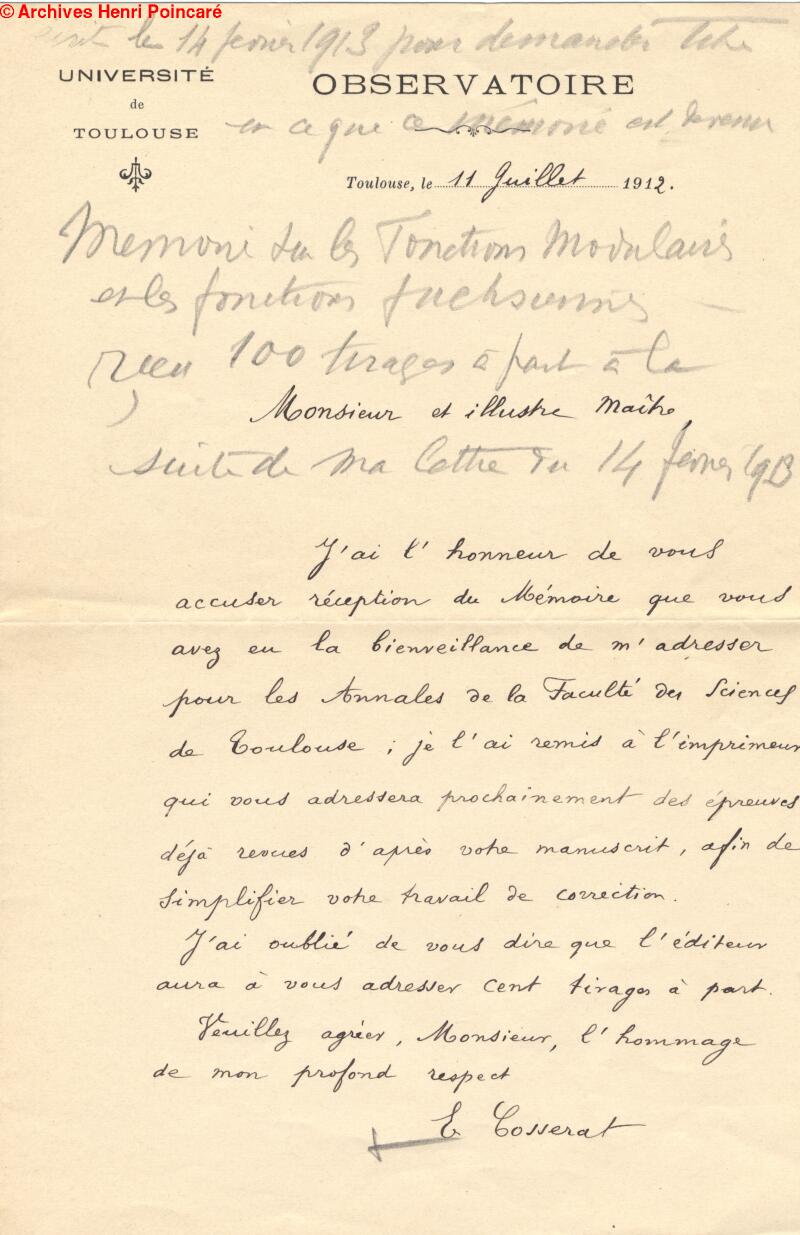 © Archives Henri Poincaré
le 14 février 1913 pour demander
UNIVERSITÉ
de
TOULOUSE
OBSERVATOIRE
en ce que ce mémoire est devenu
Toulouse, le 11 Juillet 1912.
Memoire sur les Fonctions Modulaires
et les fonctions fuchsiennes —
reçu 100 tirages à part à la
Monsieur et illustre Maître,
suite de ma lettre du 14 février 1913
J'ai l'honneur de vous
accuser réception du Mémoire que vous
avez eu la bienveillance de m'adresser
pour les Annales de la Faculté des Sciences
de Toulouse ; je l'ai remis à l'imprimeur
qui vous adressera prochainement des épreuves
déjà revues d'après votre manuscrit, afin de
simplifier votre travail de correction.
J'ai oublié de vous dire que l'éditeur
aura à vous adresser cent tirages à part.
Veuillez agréer, Monsieur, l'hommage
de mon profond respect
E Cosserat